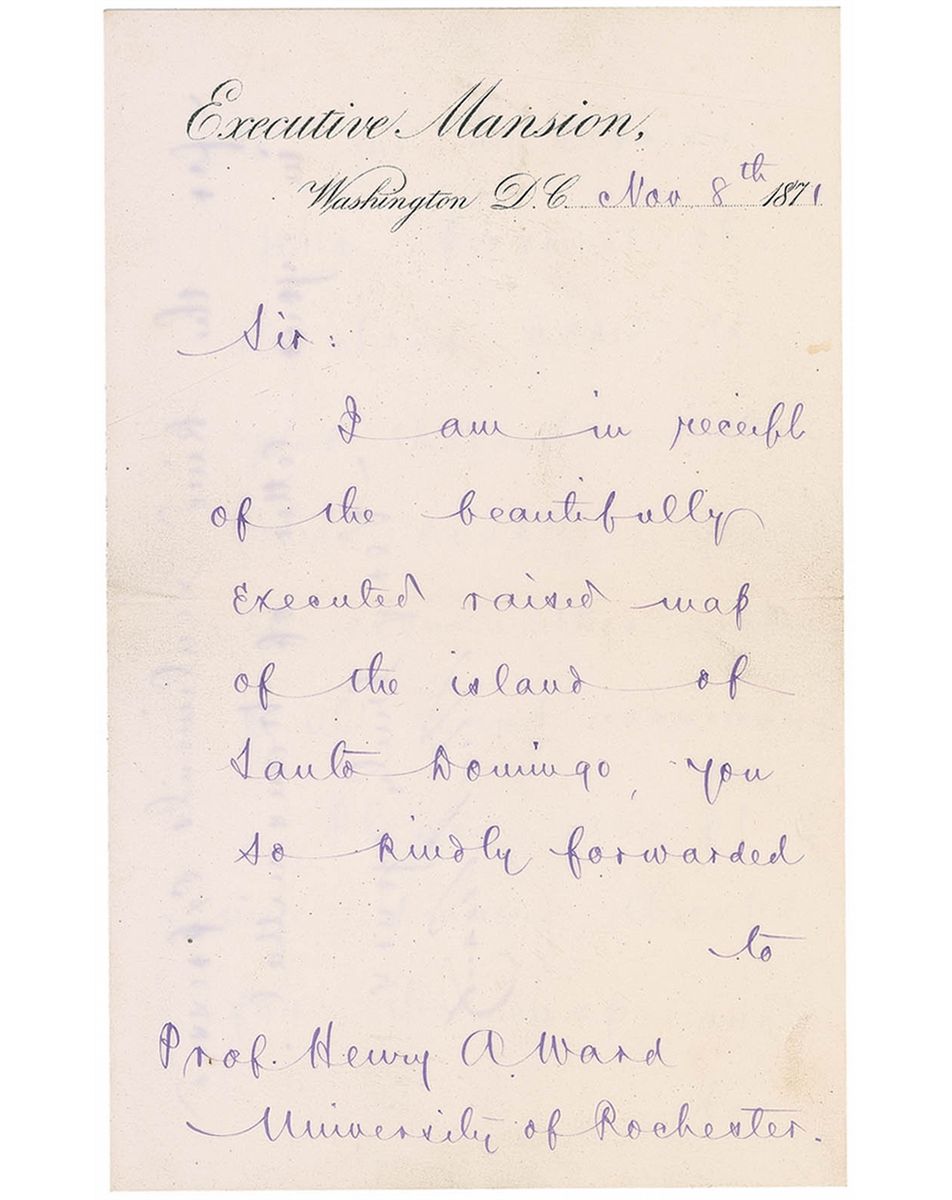 Executive Mansion,
Washington D.C. Nov 8th 1871
Sir:
I am in receipt
of the beautifully
executed raised map
of the island of
Santo Domingo, you
so kindly forwarded
to
Prof. Henry A Ward
University of Rochester.